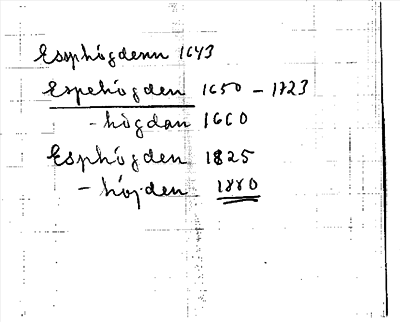 Essphögdenn 1643
Espehögden 1650 - 1723
- högdan 1660
Esphögden 1825
- höjden 1880